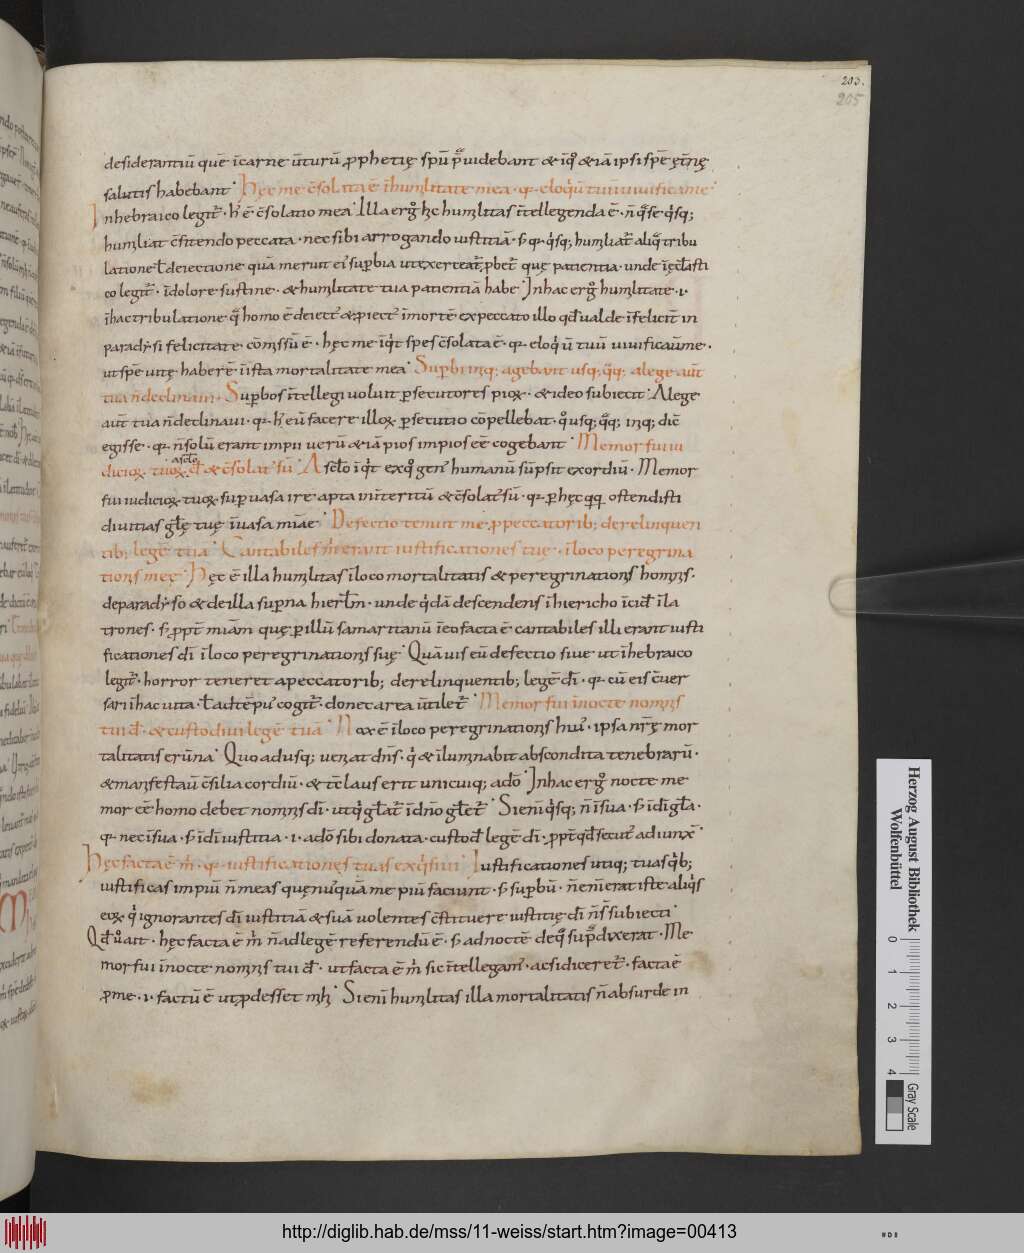 203.
205
desiderantiū quē īcarne ūturū ꝓphetię spū p̄uidebant & iqͦ & iā ipsi spē ęt̄nę
salutis habebant. Hęc me c̄solata ē īhumlitate mea. qꝛ eloqͥū tuū uiuificauit me.
Inhebraico legit᷑. h̄ ē c̄solatio mea. Illa ergͦ hęc humlitas ītellegenda ē. n̄ qͣ se qͥsq;
humliat c̄fitendo peccata. nec sibi arrogando iustitiā. s; qꝛ qͥsq; humliat᷑ aliqͣ tribu
latione ł deiectione quā meruit ei᷒ supbia
co legit᷑. īdolore sustine. & humlitate tua patientiā habe. Inhac ergͦ humlitate .i.
īhac tribulatione qͣ homo ē deiect᷒ & ꝓiect᷒ īmortē expeccato illo
paradysi felicitate cōmissū ē. hęc me īqͥt spes c̄solata ē. qꝛ eloqͥū tuū uiuificauit me.
ut spē uitę haberē īista mortalitate mea. Supbi inq; agebant usq; qͣq; a lege aūt
tua n̄ declinaui. Supbos ītellegi uoluit psecutores pioꝝ. & ideo subiecit. A lege
aūt tua n̄ declinaui. qꝛ h̄ eū facere illoꝝ psecutio cōpellebat. qͦ usq; qͣq; inq; dic̄
egisse. qꝛ n̄ solū erant impii uerū & iā pios impios eē cogebant. Memor fui iu
dicioꝝ tuoꝝ a sclo dn̄e & c̄solat᷒ sū. A sclo īqͥt ex qͦ gen᷒ humanū sūpsit exordiū. Memor
fui iudicioꝝ tuoꝝ sup uasa irę apta īn̄teritū & c̄solat᷒ sū. qꝛ p hęc qqꝫ ostendisti
diuitias głę tuę īuasa miāe. Defectio tenuit me p peccatorib; derelinquen
tib; legē tuā. Cantabiles m̄ erant iustificationes tuę. īloco peregrina
tionis meę. Hęc ē illa humlitas īloco mortalitatis & peregrinationis hominis.
de paradyso & de illa supna hierłm. unde qͥdā descendens īhiericho īcidit īla
trones. s; ꝓpt᷑ miām quę p illū samaritanū īeo facta ē. cantabiles illi erant iusti
ficationes dī īloco peregrinationis suę. Quāuis eū defectio siue ut īhebraico
legit᷑. horror teneret a peccatorib; derelinquentib; legē dī. qꝛ cū eis c̄uer
sari īhac uita. ł ad tēp᷒ cogit᷑. donec area uētilet᷑. Memor fui īnocte nominis
tui dn̄e. & custodiui legē tuā. Nox ē īloco peregrinationis hui᷒. ipsa nr̄ę mor
talitatis erūna. Quo adusq; ueniat dn̄s. qͥ & īluminabit abscondita tenebrarū.
& manifestabit c̄silia cordiū. & tc̄ laus erit unicuiq; a dō. Inhac ergͦ nocte me
mor eē homo debet nominis dī. ut qͥ głat᷑ īdn̄o głet᷑. Si enī
qꝛ nec īsua. s; īdī iustitia .i. a dō sibi donata. custodit legē dī. ꝓpt᷑ qd secut᷒ adiunxit.
Hęc facta ē m̄. qꝛ iustificationes tuas exqͥsiui. Iustificationes utiq; tuas qͥb;
iustificas impiū n̄ meas quę nūquā me piū faciunt. s; supbū. n̄ enī erat iste aliqͥs
eoꝝ qͥ ignorantes dī iustitiā & suā uolentes c̄stituere iustitię dī n̄ s̄ subiecti.
Qd u̇o ait. hęc facta ē m̄ n̄ ad legē referendū ē. s; ad noctē de qͣ sup dixerat. Me
mor fui īnocte nominis tui dn̄e. ut facta ē m̄ sic ītellegam᷒. ac si diceret᷑. facta ē
ꝓ me .i. factū ē ut ꝓdesset mihi. Si enī humlitas illa mortalitatis n̄ absurde in
Herzog August Bibliothek
Wolfenbüttel
0
1
2
3
4
Gray Scale
http://diglib.hab.de/mss/11-weiss/start.htm?image=00413